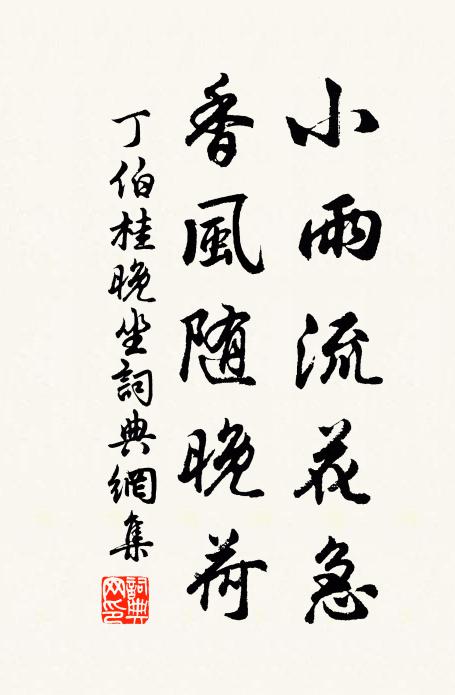 小雨流花急
香風随晚荷
丁伯桂晚坐詞典網集
詞典網印